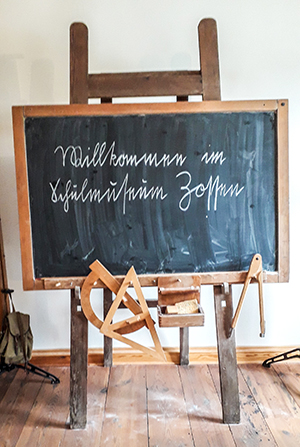 Willkommen im
Schulmuseum Zossen